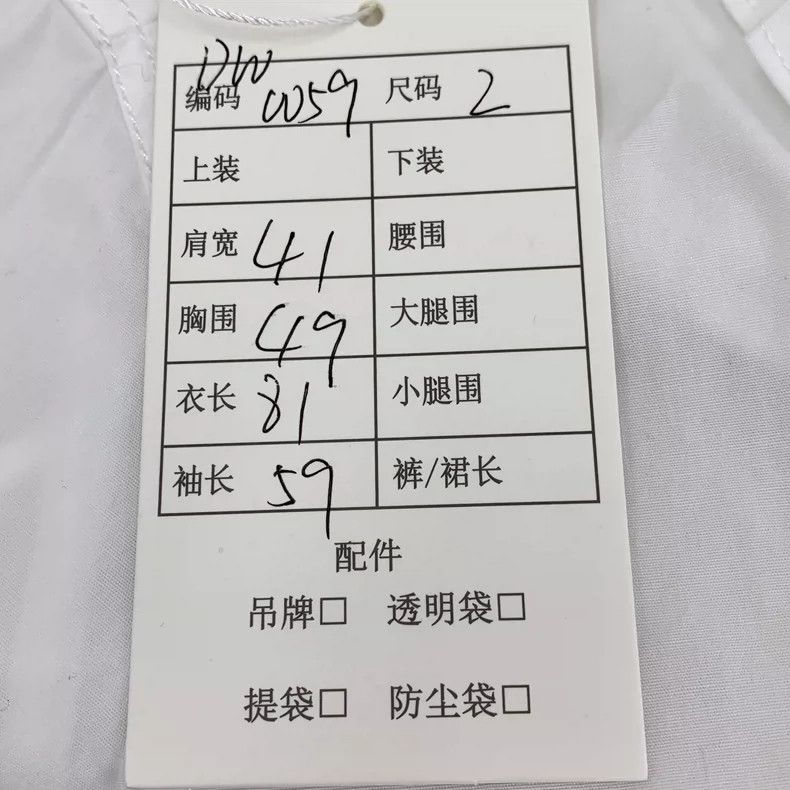 DW
编码 0059 尺码 2
上装 下装
肩宽 41 腰围
胸围 49 大腿围
衣长 81 小腿围
袖长 59 裤/裙长
配件
吊牌□ 透明袋□
提袋□ 防尘袋□